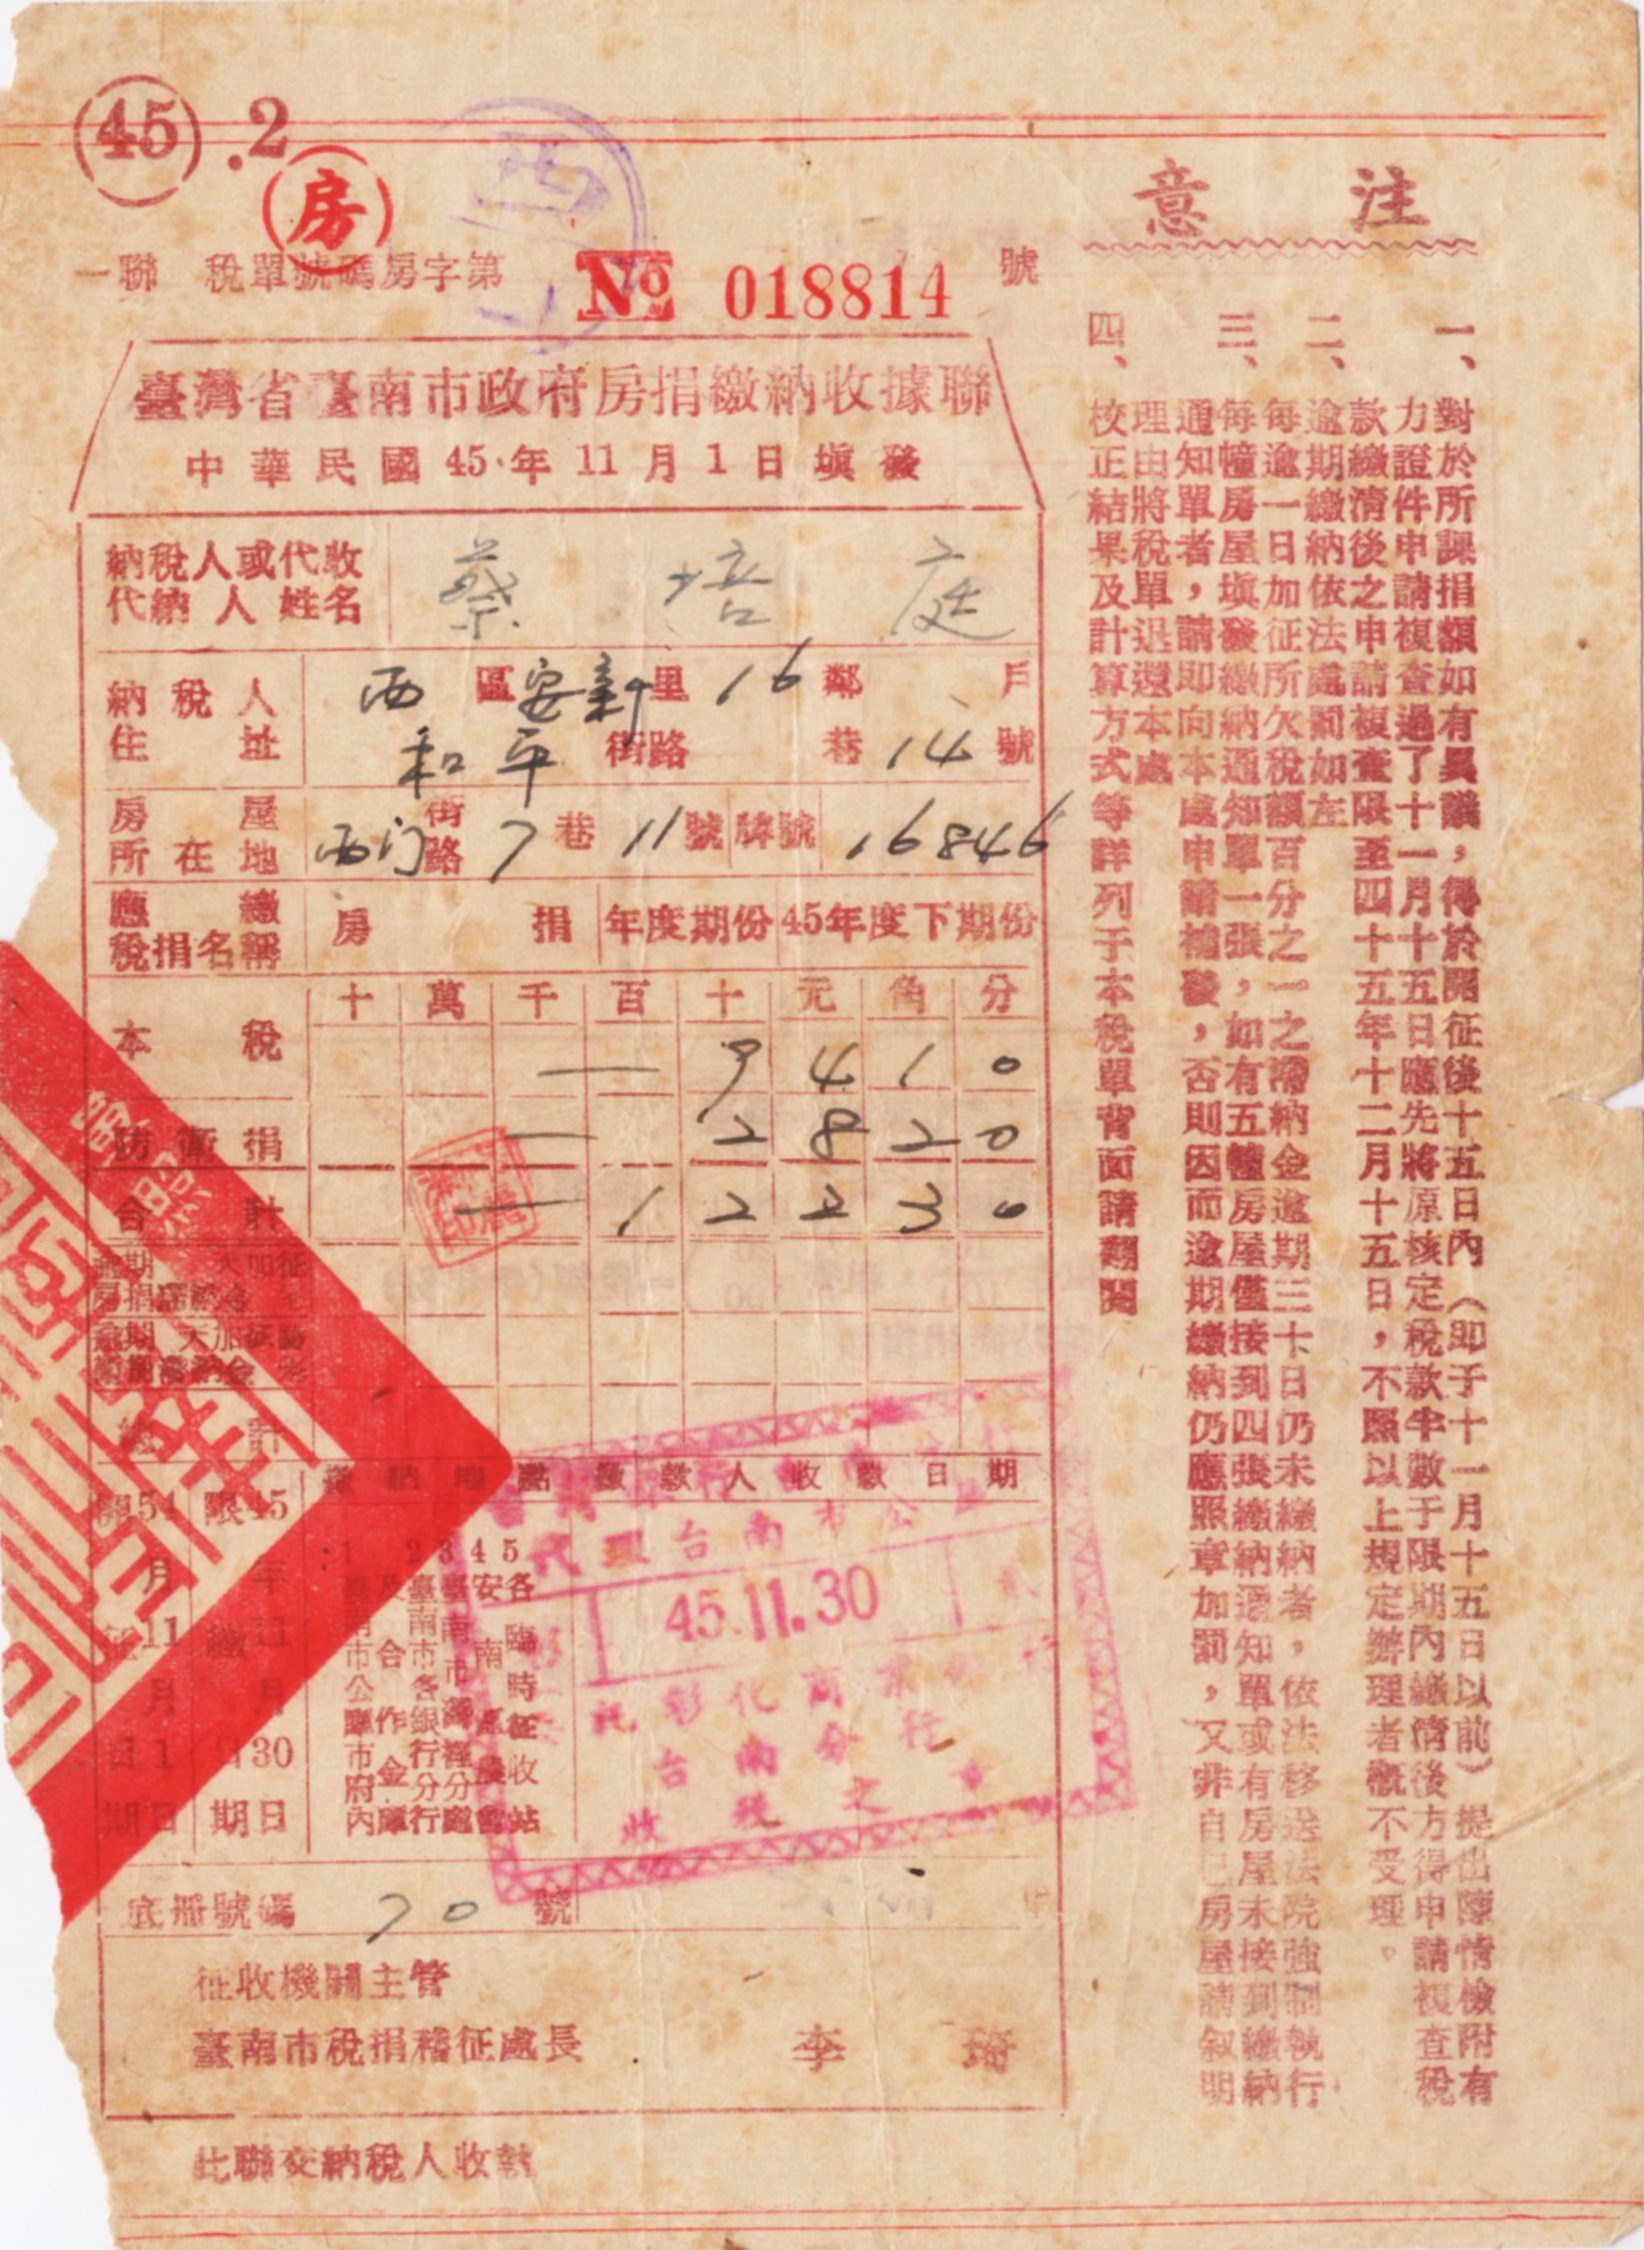 45.2
房
一聯 稅單號碼房字第 No 018814 號
臺灣省臺南市政府房捐繳納收據聯
中華民國45年11月1日填發
納稅人或代收
代納人姓名
蔡培庭
納稅人
住址
西區安新里16鄰 戶
和平街路 巷14號
房屋
所在地
西门街路7巷11號 牌號 16846
應繳
稅捐名稱
房捐 年度期份 45年度下期份
十 萬 千 百 十 元 角 分
本稅 一 9 4 1 0
防衛捐 一 2 8 2 0
合計 一 1 2 2 3 0
總計
繳納地點 繳款人收款日期
限45年11月30日
繳期
1 臺南市公庫市府內
2 及合作金庫
3 臺南市各銀行分行
4 安南區農會
5 各臨時征收站
代理台南市公庫
45.11.30
彰化商業銀行
台南分行
收稅之章
底冊號碼 70 號
征收機關主管
臺南市稅捐稽征處長 李琦
此聯交納稅人收執
注意
一、對於所課捐額如有異議，得於開征後十五日內（即于十一月十五日以前）提出陳情檢附有
力證件申請複查過了十一月十五日應先將原核定稅款半數于限期內繳清後方得申請複查稅
款繳清後之申請複查限至四十五年十二月十五日，不照以上規定辦理者概不受理。
二、逾期繳納依法處罰如左
每逾一日加征所欠稅額百分之一之滯納金逾期三十日仍未繳納者，依法移送法院強制執行
三、每幢房屋填發繳納通知單一張，如有五幢房屋僅接到四張繳納通知單或有房屋未接到繳納
通知單者，請即向本處申請補發，否則因而逾期繳納仍應照章加罰，又非自己房屋請叙明
理由將稅單退還本處
四、校正結果及計算方式等詳列于本稅單背面請翻閱